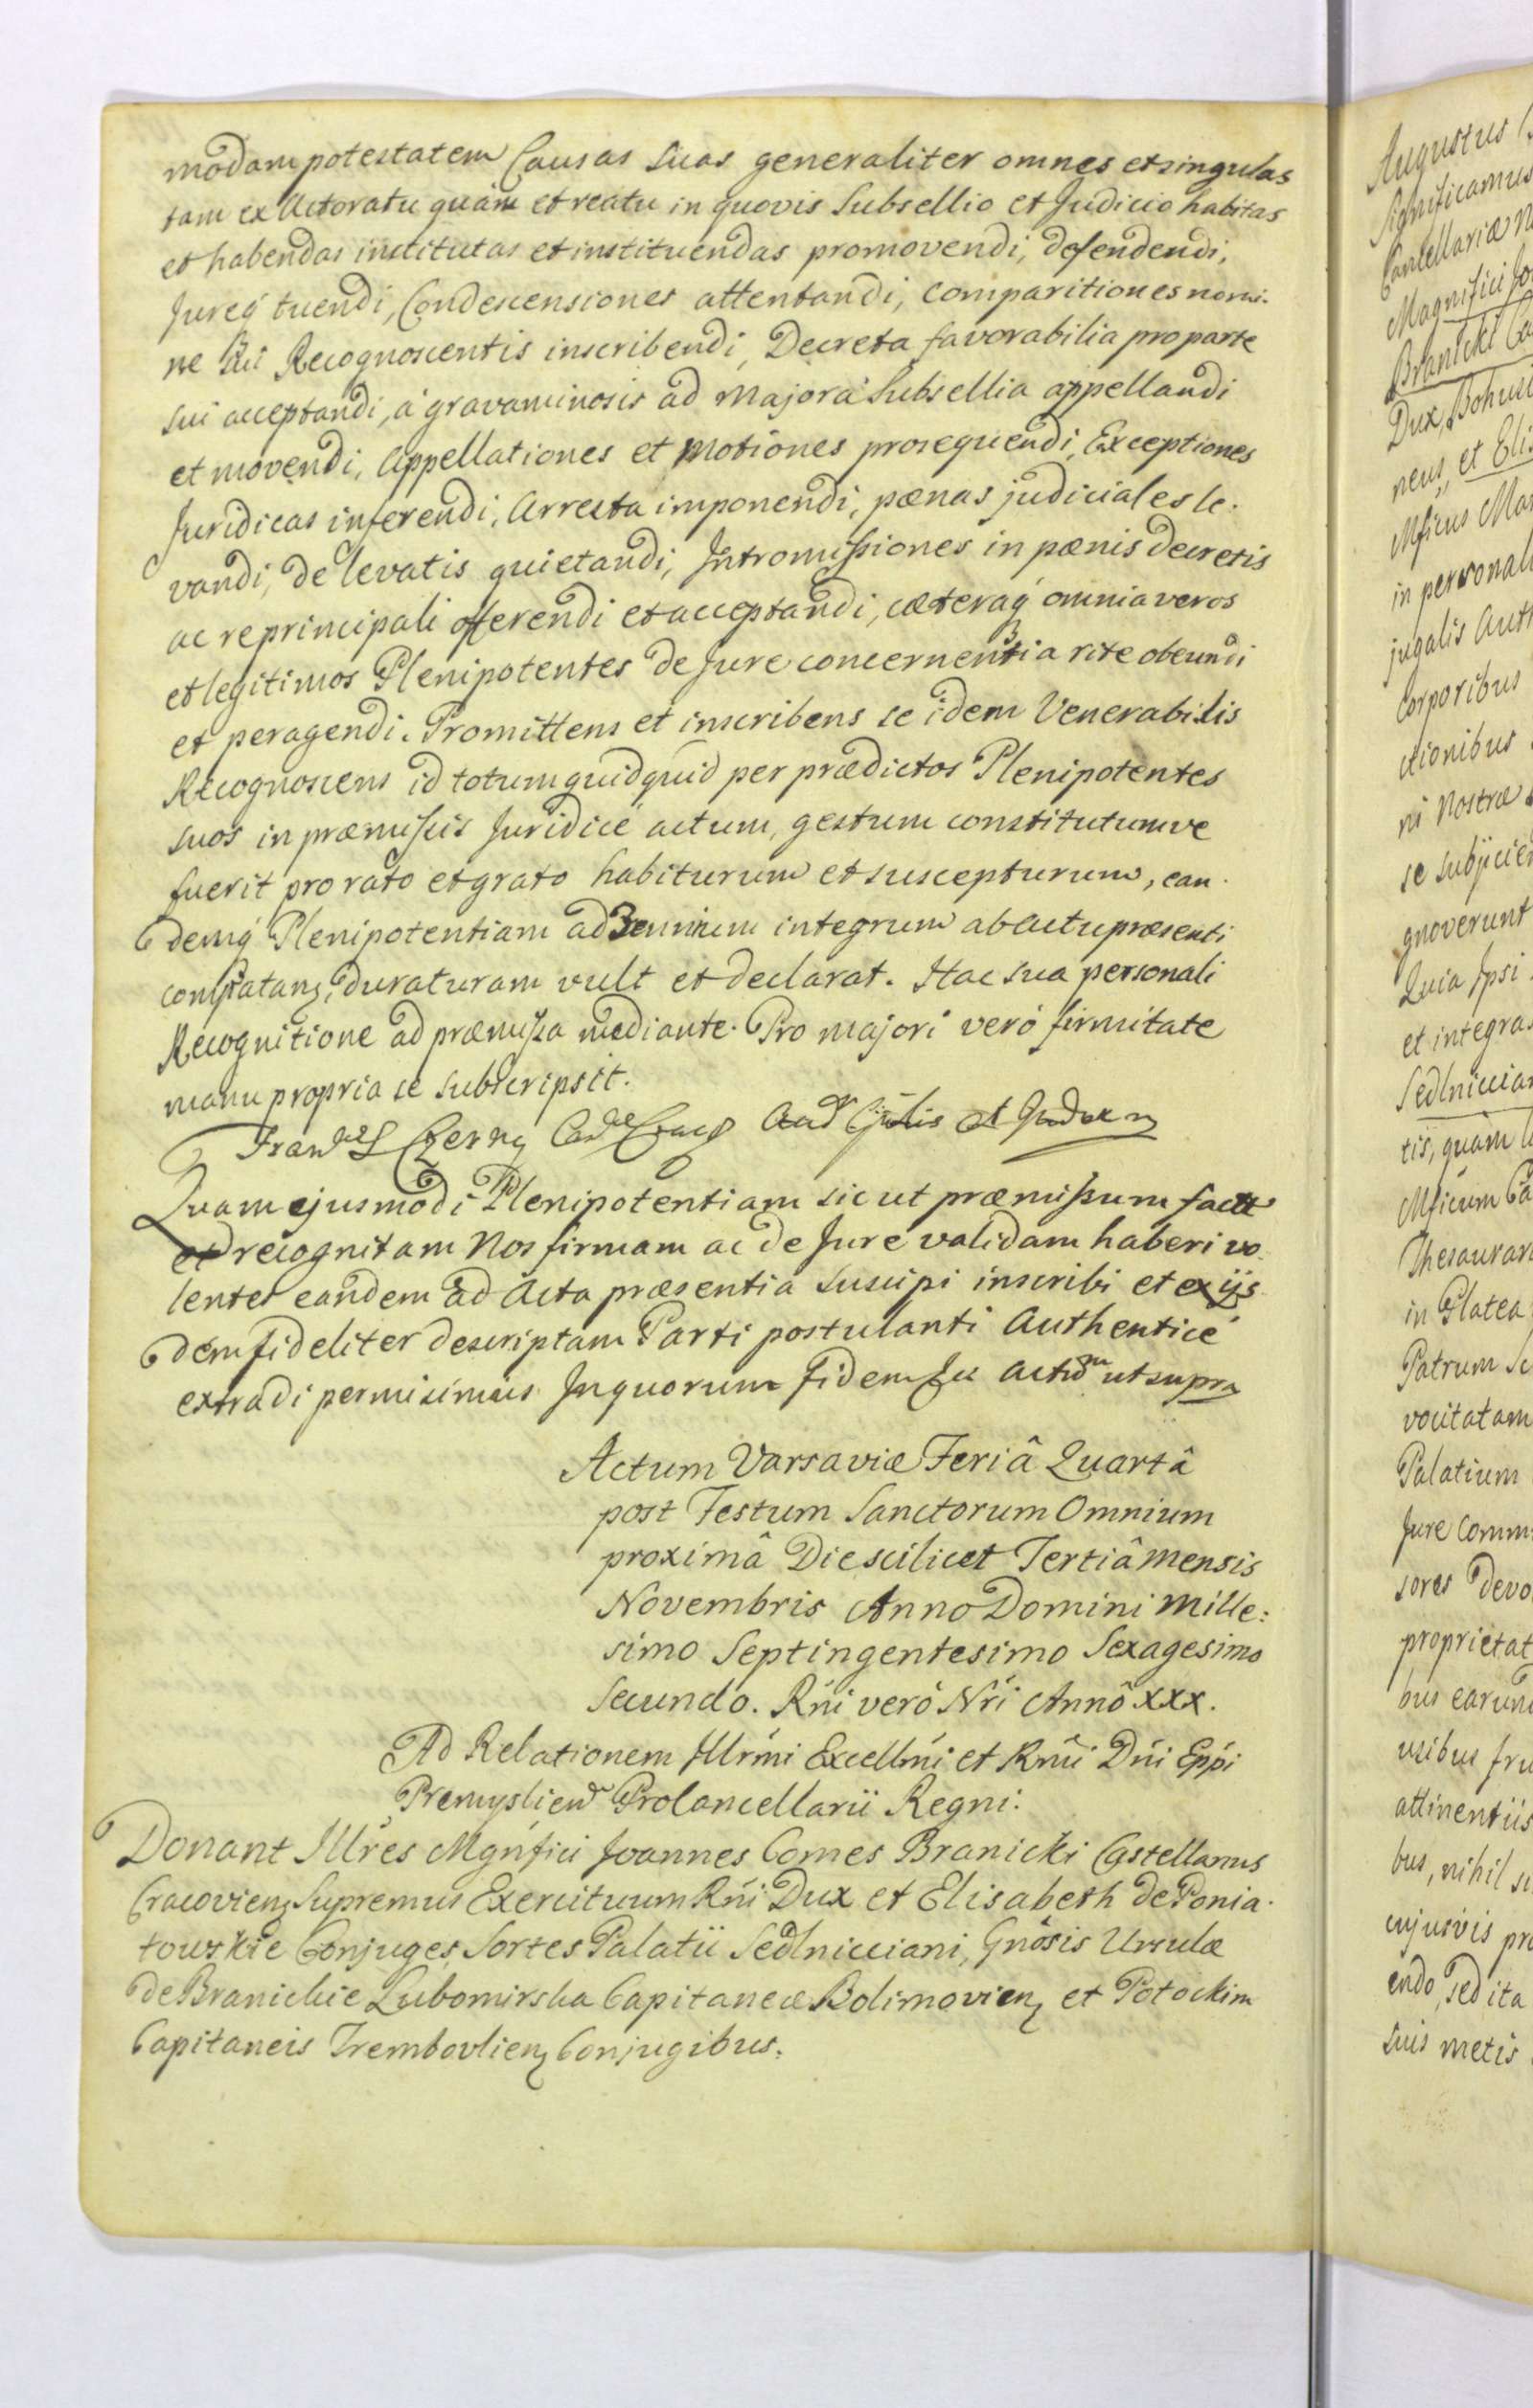 modam potestatem Causas Suas generaliter omnes et singulas
tam ex Actoratu quàm et reatu in quovis Subsellio et Judicio habitas
et habendas institutas et instituendas promovendi, defendendi,
Jureq́ tuendi, Condescensiones attentandi, Comparitiones nomi-
ne Sui Recognoscentis inscribendi, Decreta favorabilia pro parte
sui acceptandi, à gravaminosis ad Majora Subsellia appellandi
et movendi, Appellationes et Motiones prosequendi, Exceptiones
Juridicas inferendi, Arresta imponendi, pœnas judiciales le-
vandi, de levatis quietandi, Intromissiones in pœnis decretis
ac re principali offerendi et acceptandi, cæteraq́ omnia veros
et legitimos Plenipotentes de Jure concernentia rite obeundi
et peragendi. Promittens et inscribens se idem Venerabilis
Recognoscens id totum quidquid per prædictos Plenipotentes
suos in præmissis Juridicè actum, gestum constitutumve
fuerit pro rato et grato habiturum et suscepturum, ean-
demq́ Plenipotentiam ad 3ennium integrum ab actu præsenti
duraturam vult et declarat. Hac sua personali
Recognitione ad præmissa mediante. Pro majori verò firmitate
manu propria se subscripsit.
Czerny et
Quam ejusmodi Plenipotentiam sic ut præmissum
et recognitam Nos firmam ac de Jure validam haberi vo-
lentes eandem ad Acta præsentia suscipi inscribi et ex ijs
dem fideliter descriptam Parti postulanti Authenticè
extradi permisimus. In quorum fidem ut supra
Actum Varsaviæ Feriâ Quartâ
post Festum Sanctorum Omnium
proximâ Die scilicet Tertiâ Mensis
Novembris Anno Domini Mille:
simo Septingentesimo Sexagesimo
Secundo. Rńi verò Nŕi Annô XXX.
Ad Relationem Illrḿi Excellḿi et Rńii Dńi Eppi
Prolancellarii Regni.
Donant Illŕes Mgńfici Joannes Comes Branicki Castellanus
Cracovienȥ Supremus Exercituum Rńi Dux et Elisabeth de Ponia-
towskie Conjuges, Sortes Palatii Sedlnicciani, Gnôsis Ursulæ
de Branickie Lubomirska Capitaneæ Bolimovienȥ et Potockim
Capitaneis Trembovlienȥ Conjugibus.
Augustus
Significamus
Cancellariæ
Magnifici
Branicki
Dux,
neus, et
Mficus
in personali
jugalis
Corporibus
ctionibus
Nostræ
se
gnoverunt
Quia Ipsi
et integra
Sedlniccia
tis, quàm
Mficum
in Platea
Patrum
vocitatam
Palatium
Jure
sores
proprietat
bus
usibus
attinentiis
bus, nihil
cujusvis
endo, sed ita
suis metis